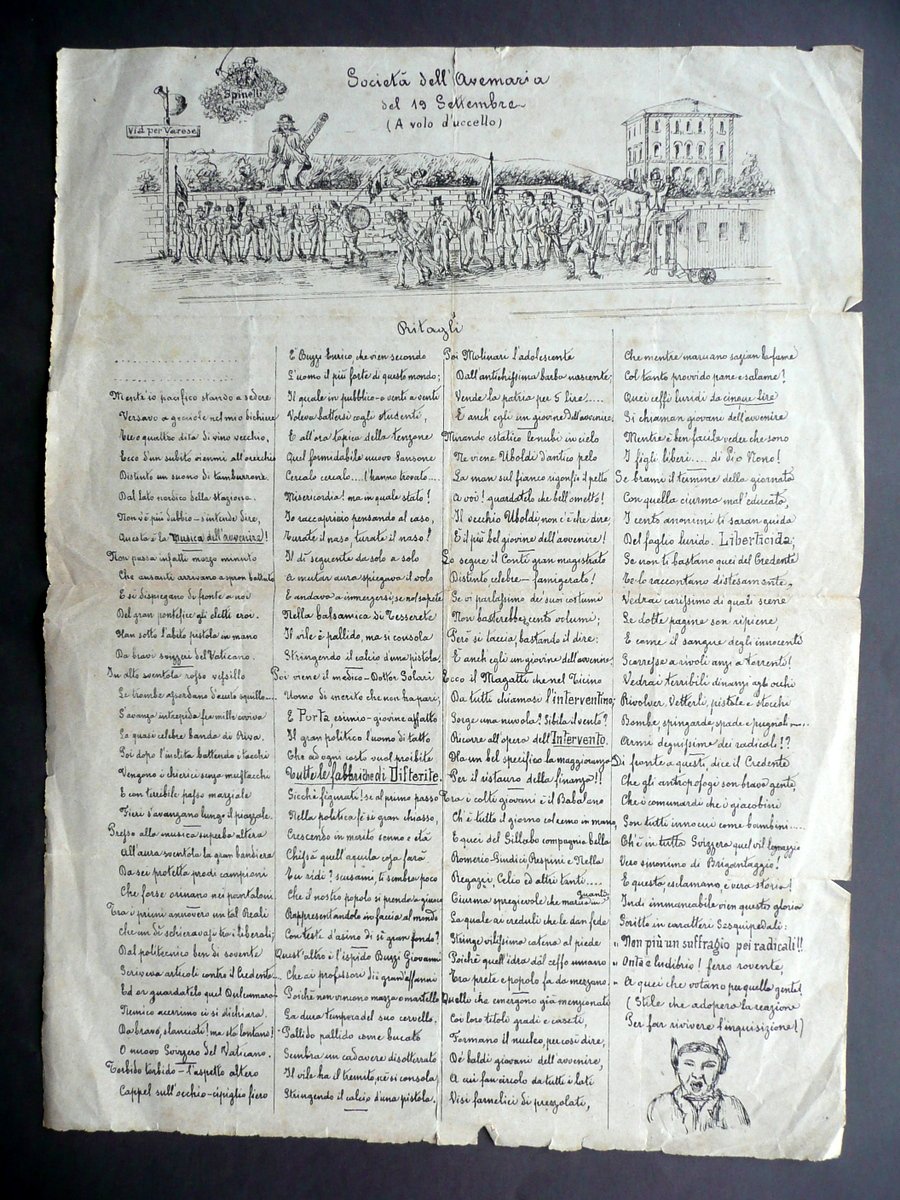 Spinelli
Società dell'Avemaria
del 19 Settembre
(A volo d'uccello)
Via per Varese
Ritagli
Mentr'io pacifico stando a sedere
Versavo a gocciole nel mio bicchiere
Tre o quattro dita di vino vecchio,
Ecco d'un subito vienmi all'orecchio
Distinto un suono di tamburrone
Dal lato nordico della stazione.
Non v'è più dubbio – s'intende dire,
Questa è la musica dell'avvenire!
Non passa infatti mezzo minuto
Che ansanti arrivano a spron battuto
E si dispiegano di fronte a noi
Del gran pontefice gli eletti eroi.
Han sotto l'abito pistola in mano
Da bravi svizzeri del Vaticano.
In alto sventola rosso vessillo
Le trombe assordano d'acuto squillo
S'avanza intrepida fra mille evviva
La quasi celebre banda di Riva.
Poi dopo l'inclita battendo i tacchi
Vengono i chierici senza mustacchi
E con terribile passo marziale
Fieri s'avanzano lungo il piazzale.
Presso alla musica superba altera
All'aura sventola la gran bandiera
Da sei protetta prodi campioni
Che forse orinano nei pantaloni.
Tra i primi annovero un tal Reali
Che un dì schieravasi tra i liberali;
Dal politecnico ben di sovente
Scriveva articoli contro il Credente
Ed or guardatelo quel
Nemico acerrimo ci si dichiara.
Da bravo, slanciati! ma sta lontano!
O nuovo Svizzero del Vaticano.
Torbido torbido – l'aspetto altero
Cappel sull'occhio – cipiglio fiero
È Buzzi Enrico, che vien secondo
L'uomo il più forte di questo mondo;
Il quale in pubblico a venti a venti
Voleva battersi cogli studenti,
E all'ora topica della tenzone
Quel formidabile nuovo Sansone
Cercalo cercalo.... l'hanno trovato....
Misericordia! ma in quale stato!
Io raccapriccio pensando al caso,
Turate il naso, turate il naso!
Il dì seguente da solo a solo
A mutar aura spiegava il volo
E andava a immergersi, se nol sapete
Nella balsamica di Tesserete
Il vile è pallido, ma si consola
Stringendo il calcio d'una pistola.
Poi viene il medico – Dottor Solari
Uomo di merito che non ha pari,
E Porta esimio – giovne affatto
Il gran politico l'uomo di tatto
Che ad ogni costo vuol proibite
Tutte le fabbriche di Difterite.
Sicchè figurati! se al primo passo
Nella politica fe' sì gran chiasso,
Crescendo in merito senno e età
Chissà quell'aquila cosa farà
Tu ridi? scusami, ti sembra poco
Che il nostro popolo si prenda a giuoco
Rappresentandolo in faccia al mondo
Con teste d'asino di sì gran fondo?
Quest'altro è l'ispido Buzzi Giovanni
Che ai professori diè grand'affanni
Poichè non vincono mazza o martello
La dura tempera del suo cervello.
Pallido pallido come bucato
Sembra un cadavere disotterrato
Il vile ha il tremito, nè si consola
Stringendo il calcio d'una pistola.
Poi Molinari l'adolescente
Dall'antichissima barba nascente;
Vende la patria per 5 lire....
È anch'egli un giovine dell'avvenire,
Mirando estatico le nubi in cielo
Ne viene Uboldi d'antico pelo
La man sul fianco rigonfio il petto
A voi! guardatelo che bell'ometto!
Il vecchio Uboldi, non c'è che dire,
È il più bel giovine dell'avvenire!
Lo segue il Conti gran magistrato
Distinto celebre – famigerato!
Se vi parlassimo de' suoi costumi
Non basterebbe cento volumi;
Però si taccia, bastando il dire;
È anch'egli un giovine dell'avvenire
Ecco il Magatti che nel Ticino
Da tutti chiamasi l'interventino;
Sorge una nuvola? Sibila il vento?
Ricorre all'opera dell'Intervento.
Ha un bel specifico la maggioranza
Per il ristauro della finanza!!
Tra i colti giovani è il Babalano
Ch'è tutto il giorno col cero in mano,
E quei del Sillabo compagnia bella
Romerio Giudici Respini e Nella
Regazzi, Celio ed altri tanti....
Ciurma spregievole che marcia in guanti
La quale ai creduli che le dan fede
Stringe vilissima catena al piede
Poichè quell'idra dal ceffo umano
Tra prete e popolo fa da mezzano.
Quello che emergono già menzionati
Coi loro titoli gradi e casati,
Formano il nucleo, per così dire,
De' baldi giovani dell'avvenire
A cui fan circolo da tutti i lati
Visi famelici di prezzolati,
Che mentre marciano sazian la fame
Col tanto provvido pane e salame!
Quei ceffi luridi da cinque lire
Si chiaman giovani dell'avvenire
Mentre è ben facile veder che sono
I figli liberi.... di Pio Nono!
Se brami il termine della giornata
Con quella ciurma mal'educata,
I cento anonimi ti saran guida
Del foglio lurido. Liberticida;
Se non ti bastano quei del Credente
Te lo raccontano distesamente,
Vedrai carissimo di quali scene
Le dotte pagine son ripiene,
E come il sangue degli innocenti
Scorresse a rivoli anzi a torrenti!
Vedrai terribili dinanzi agli occhi
Rivolver, Vetterli, pistole e stocchi
Bombe, spingarde, spade e pugnali....
Armi degnissime dei radicali!?
Di fronte a questi, dice il Credente
Che gli antropofagi son brava gente,
Che i comunardi che i giacobini
Son tutti innocui come bambini....
Ch'è in tutta Svizzera quel vil
Vero sinonimo di Brigantaggio!
E questa, esclamano, è vera storia!
Indi immancabile vien questa gloria
Scritto in caratteri sesquipedali:
" Non più un suffragio pei radicali!!
" Onta e ludibrio! ferro rovente,
" A quei che votano per quella gente!
(Stile che adopera la reazione
Per far rivivere l'inquisizione!)